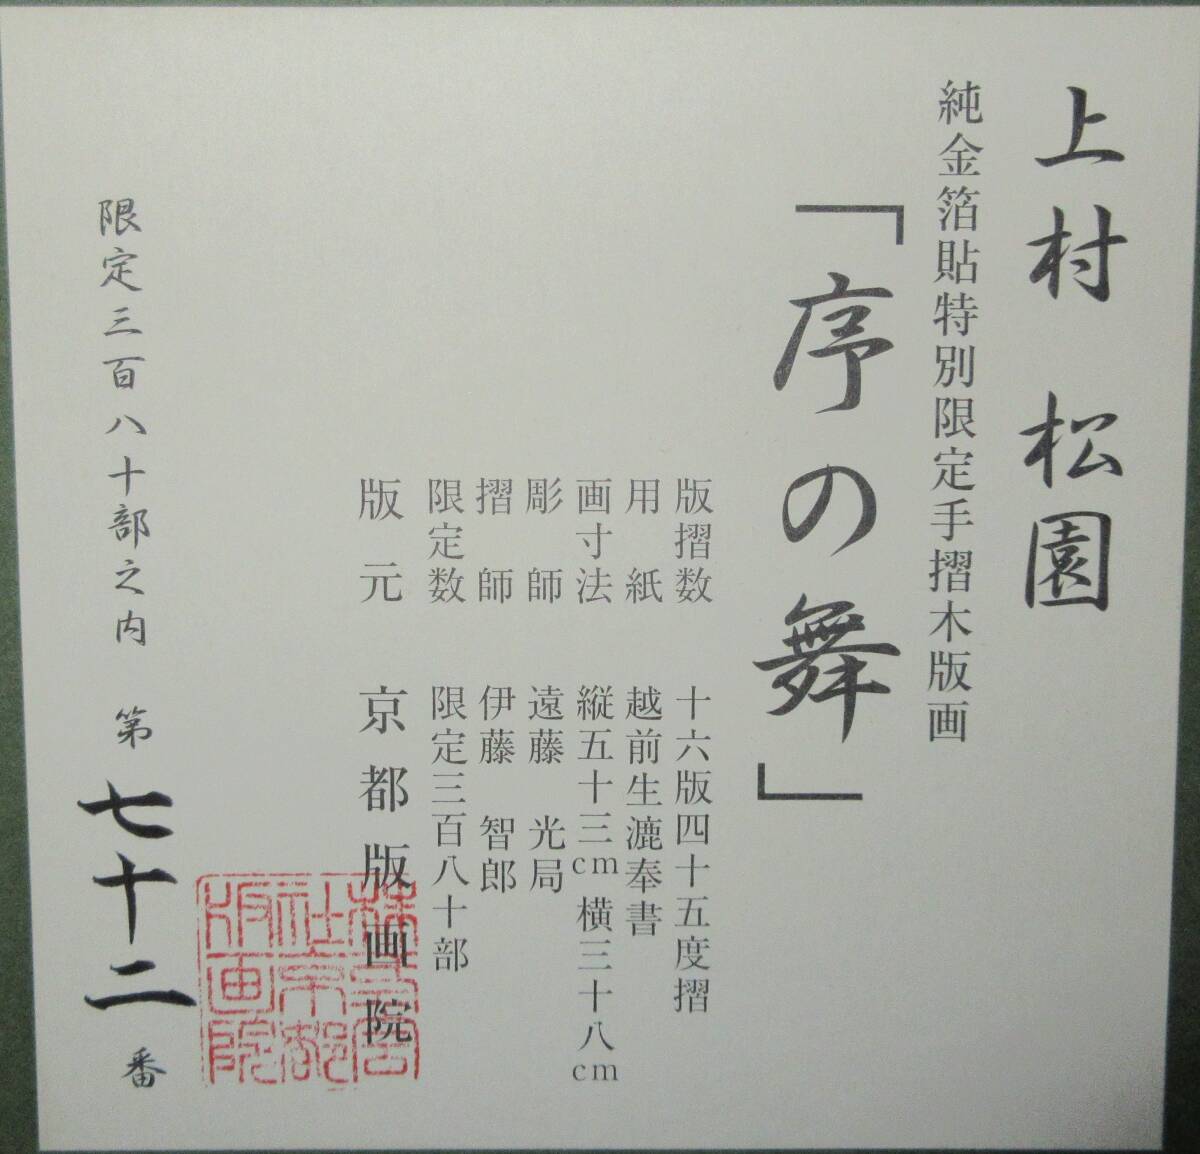 上村 松園
純金箔貼特別限定手摺木版画
「序の舞」
版摺数 十六版四十五度摺
用紙 越前生漉奉書
画寸法 縦五十三cm横三十八cm
彫師 遠藤 光局
摺師 伊藤 智郎
限定数 限定三百八十部
版元 京都版画院
株式会社京都版画院
限定三百八十部之内 第七十二番